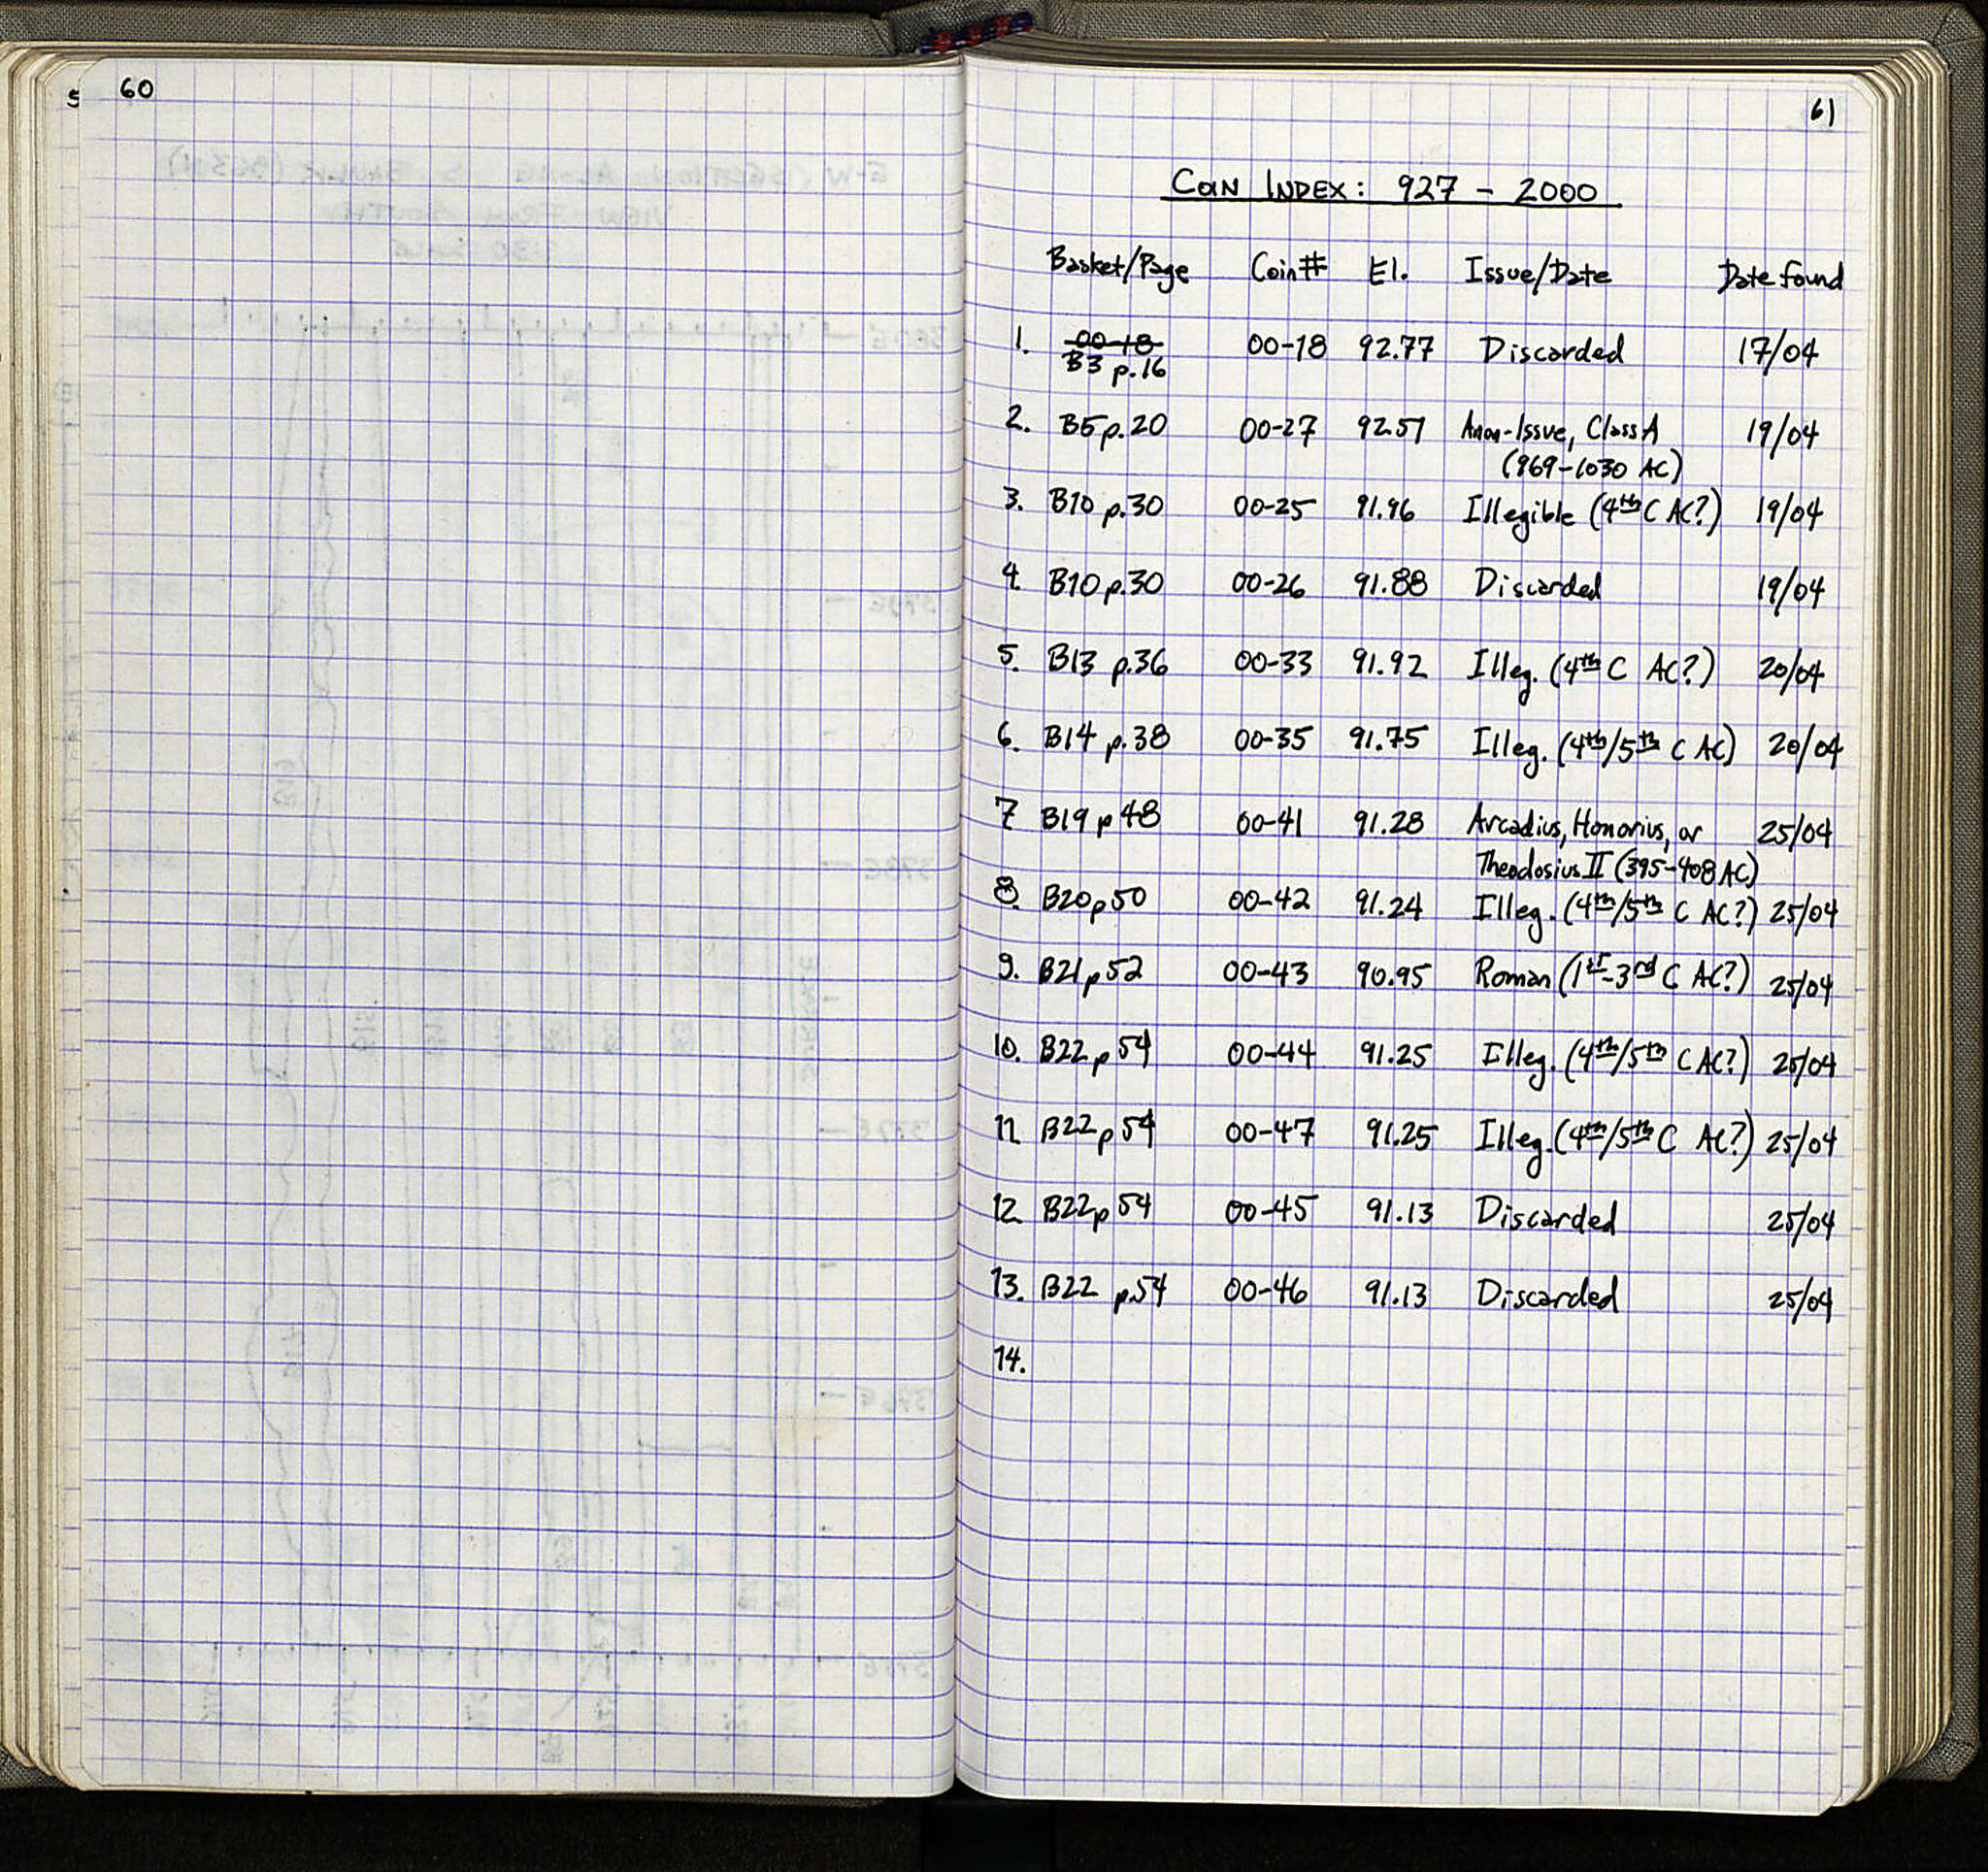 60
61
COIN INDEX: 927 - 2000
Basket/Page Coin# El. Issue/Date Date found
1. 00-18 00-18 92.77 Discarded 17/04
B3 p.16
2. B5 p.20 00-27 92.57 Anon-Issue, Class A 19/04
(969-1030 AC)
3. B10 p.30 00-25 91.96 Illegible (4th C AC?) 19/04
4. B10 p.30 00-26 91.88 Discarded 19/04
5. B13 p.36 00-33 91.92 Illeg. (4th C AC?) 20/04
6. B14 p.38 00-35 91.75 Illeg. (4th/5th C AC) 20/04
7 B19 p 48 00-41 91.28 Arcadius, Honorius, or 25/04
Theodosius II (395-408 AC)
8. B20 p 50 00-42 91.24 Illeg. (4th/5th C AC?) 25/04
9. B21 p 52 00-43 90.95 Roman (1st-3rd C AC?) 25/04
10. B22 p 54 00-44 91.25 Illeg. (4th/5th C AC?) 25/04
11 B22 p 54 00-47 91.25 Illeg. (4th/5th C AC?) 25/04
12. B22 p 54 00-45 91.13 Discarded 25/04
13. B22 p.54 00-46 91.13 Discarded 25/04
14.